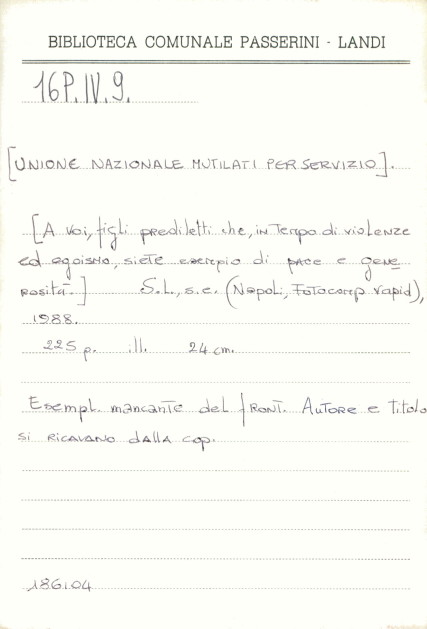 BIBLIOTECA COMUNALE PASSERINI - LANDI
16P.IV.9.
[UNIONE NAZIONALE MUTILATI PER SERVIZIO].
[A voi, figli prediletti che, in tempo di violenze
ed egoismo, siete esempio di pace e gene
rosità.] S.L., s.e. (Napoli, Fotocomp rapid),
1988.
225 p. ill. 24 cm.
Esempl. mancante del front. Autore e titolo
si ricavano dalla cop.
186104